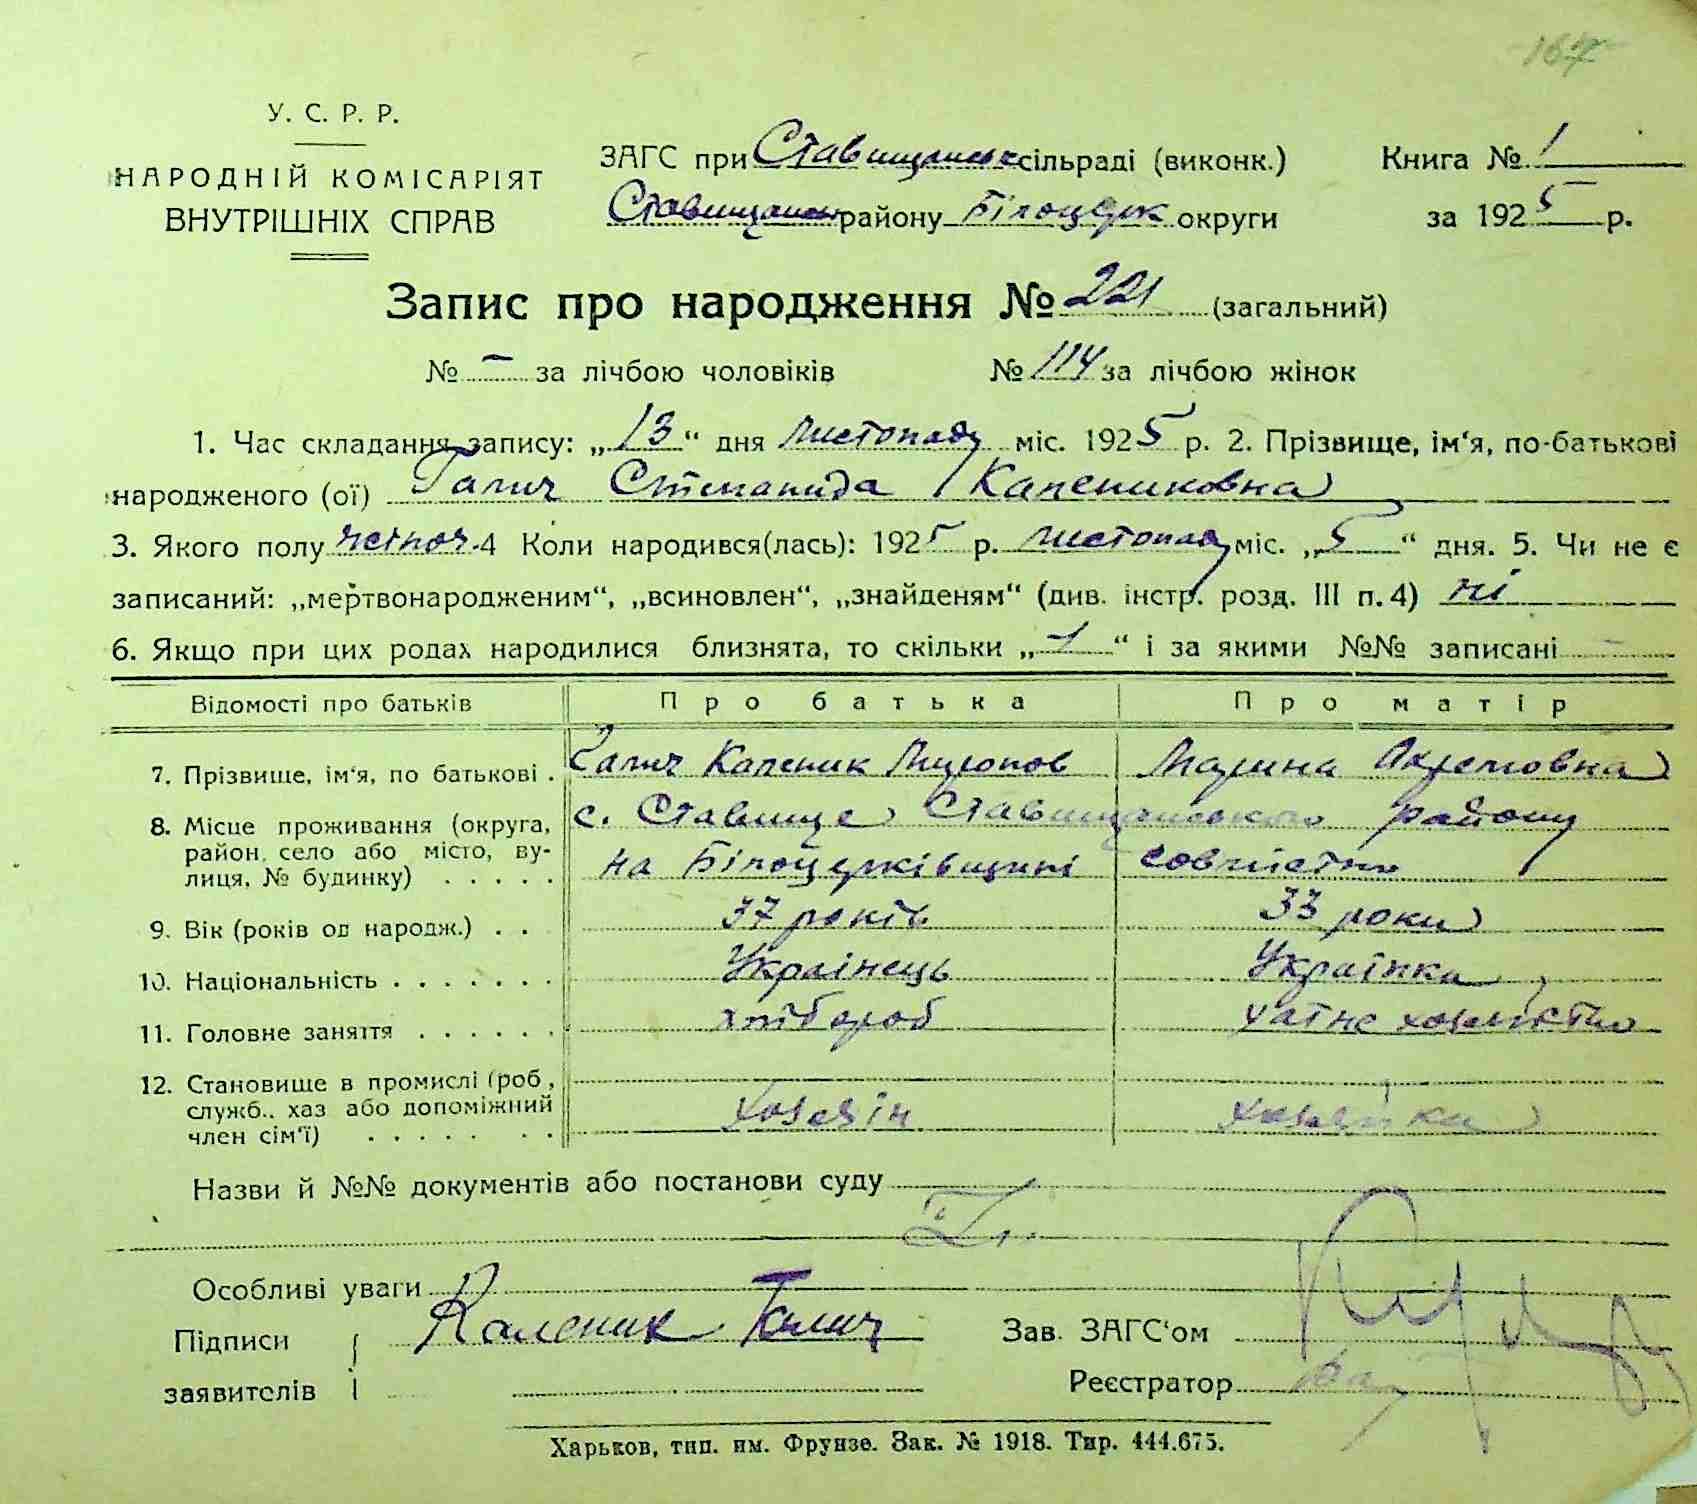 167
У. С. Р. Р.
НАРОДНІЙ КОМІСАРІЯТ
ВНУТРІШНІХ СПРАВ
ЗАГС при Ставищанськ сільраді (виконк.)
Ставищанськ району Білоцерк округи
Книга № 1
за 1925 р.
Запис про народження № 221 (загальний)
№ – за лічбою чоловіків № 114 за лічбою жінок
1. Час складання запису: „13“ дня листопаду міс. 1925 р. 2. Прізвище, ім‘я, по-батькові
народженого (ої) Галич Степанида Калениковна
3. Якого полу жіноч. 4 Коли народився(лась): 1925 р. листопаду міс. „5“ дня. 5. Чи не є
записаний: „мертвонародженим“, „всиновлен“, „знайденям“ (див. інстр. розд. III п. 4) ні
6. Якщо при цих родах народилися близнята, то скільки „1“ і за якими №№ записані –
Відомості про батьків Про батька Про матір
7. Прізвище, ім‘я, по батькові . Галич Каленик Миронов Марина Охремовна
8. Місце проживання (округа, с. Ставище Ставищанського району
район, село або місто, ву- на Білоцерківщині совмістно
лиця, № будинку) . . . . .
9. Вік (років од народж.) . . 37 років 33 роки
10. Національність . . . . . . . Українець Українка
11. Головне заняття . . . . . . хлібороб хатнє хозяйство
12. Становище в промислі (роб.,
служб., хаз або допоміжний хозяїн хозяйка
член сім‘ї) . . . . . . .
Назви й №№ документів або постанови суду
Особливі уваги
Підписи Каленик Галич Зав. ЗАГС‘ом
заявителів Реєстратор
Харьков, тип. им. Фрунзе. Зак. № 1918. Тир. 444.675.